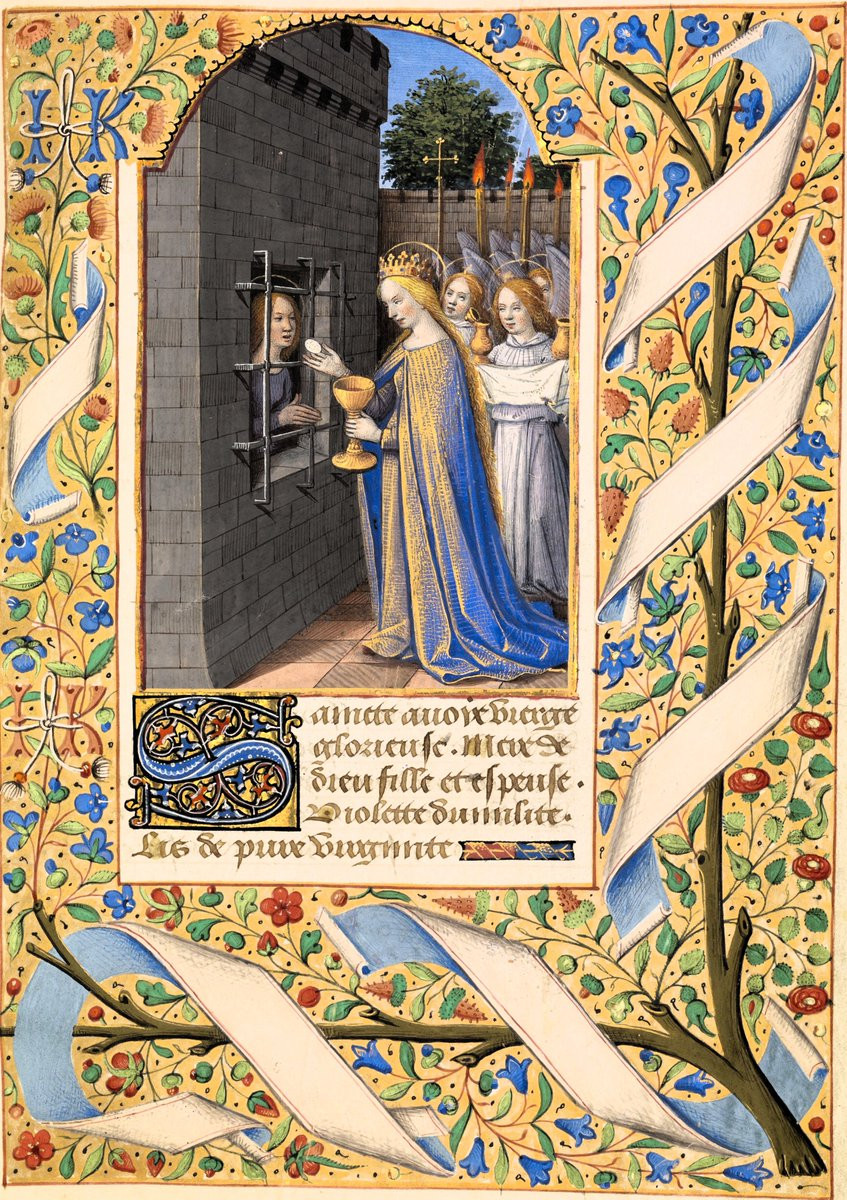 I K
I K
Saincte auoie vierge
glorieuse. Mere de
dieu fille et espeuse.
Violette dumilite.
Lis de pure virginite